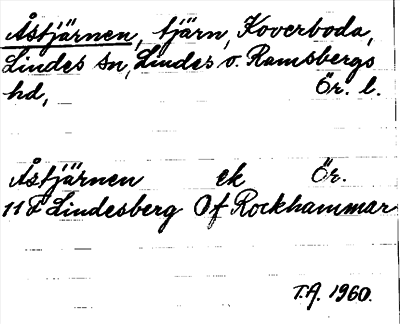 Åstjärnen, tjärn, Koverboda,
Lindes sn, Lindes o. Ramsbergs
hd, Ör. l.
Åstjärnen ek Ör.
11 F Lindesberg Of Rockhammar
T.A. 1960.